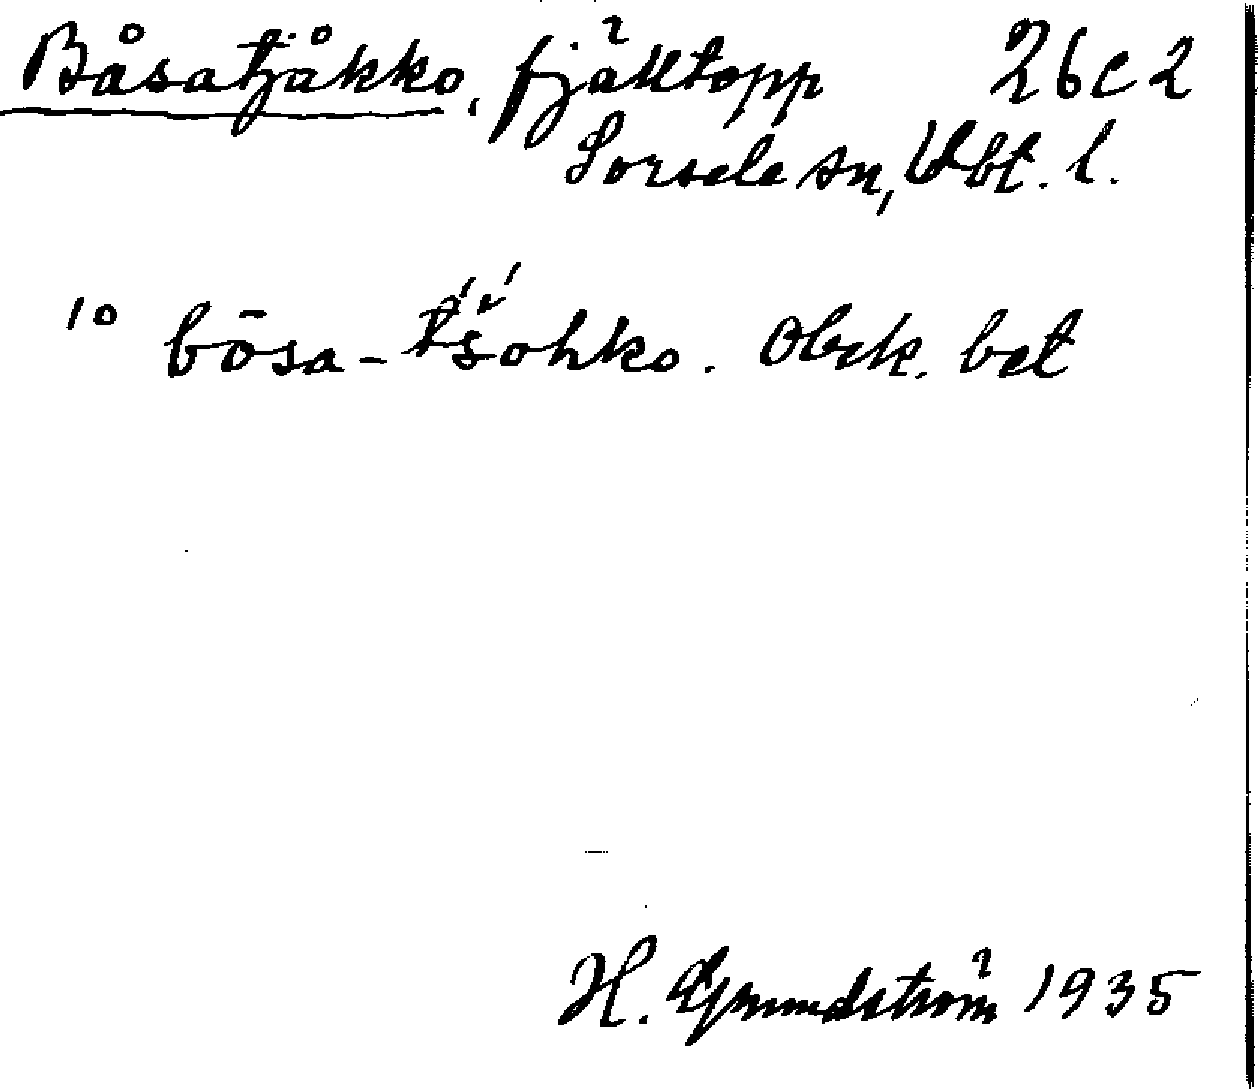 Båsatjåkko, fjälltopp 26C2
Sorsele sn, Vbt. l.
10 bōsa- ťšohko. Obek. bet
H. Grundström 1935